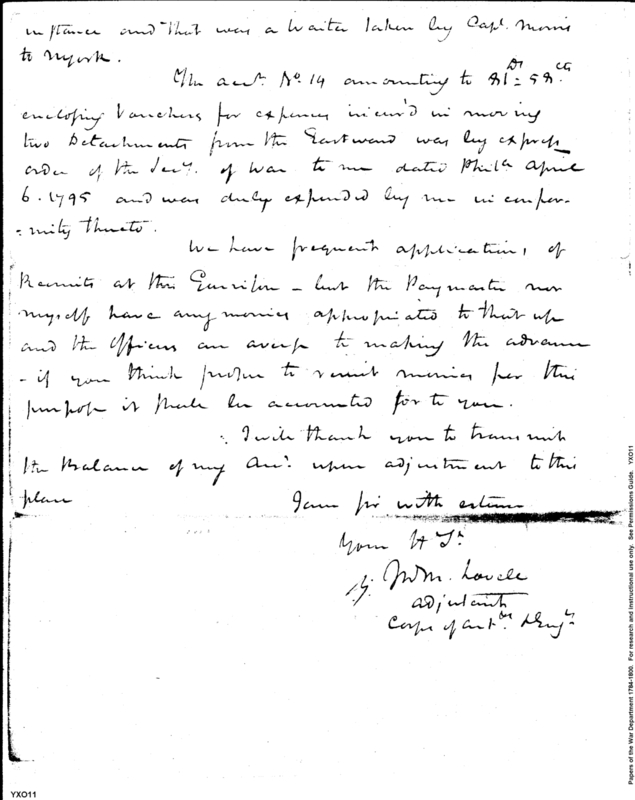 instance and that was a Waiter taken by Capt. Morris
to NYork.
The acct. No. 14 amounting to 81 Ds. 58 cts
enclosing Vouchers for expences incur'd in moving
two Detachments from the Eastward was by express
order of the Secy. of War to me dated Phila. April
6. 1795 and was duly expended by me in confor-
=mity thereto.
We have frequent applications of
Recruits at this Garrison - but the Paymaster nor
myself have any monies appropriated to that use
and the Officers are averse to making the advance
- if you think proper to remit monies for this
purpose it shall be accounted for to you.
I will thank you to transmit
the Balance of my Acct. upon adjustment to this
place
I am sir with esteem
Your H St.
Lovell
adjutant
Corps of Art. & Engs.
Papers of the War Department 1784-1800. For research and instructional use only. See Permissions Guide. YXO11
YXO11